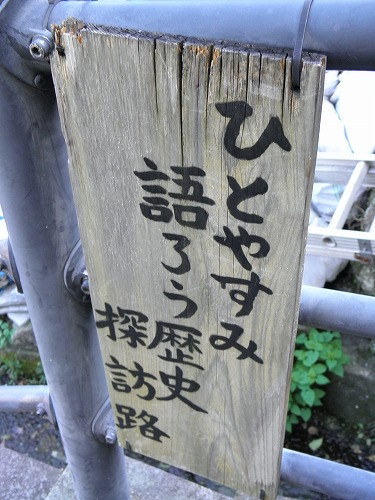 ひとやすみ
語ろう歴史
探訪路